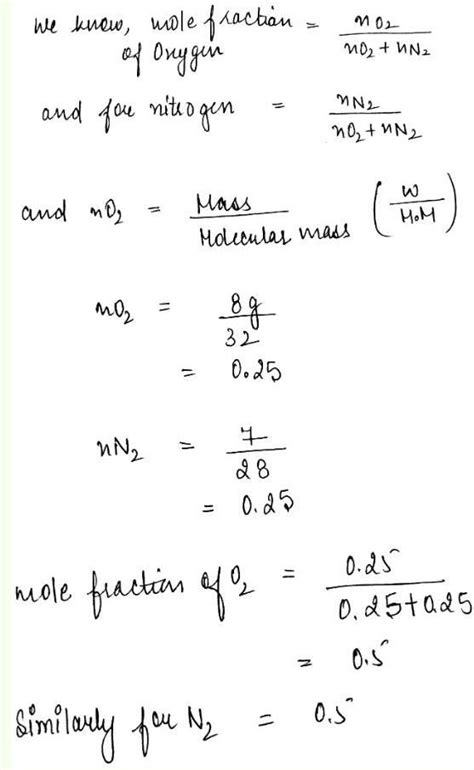 We know, mole fraction of Oxygen = nO₂ / nO₂ + nN₂
and for nitrogen = nN₂ / nO₂ + nN₂
and nO₂ = Mass / Molecular mass (W / M.M)
nO₂ = 8g / 32
= 0.25
nN₂ = 7 / 28
= 0.25
mole fraction of O₂ = 0.25 / 0.25+0.25
= 0.5
Similarly for N₂ = 0.5